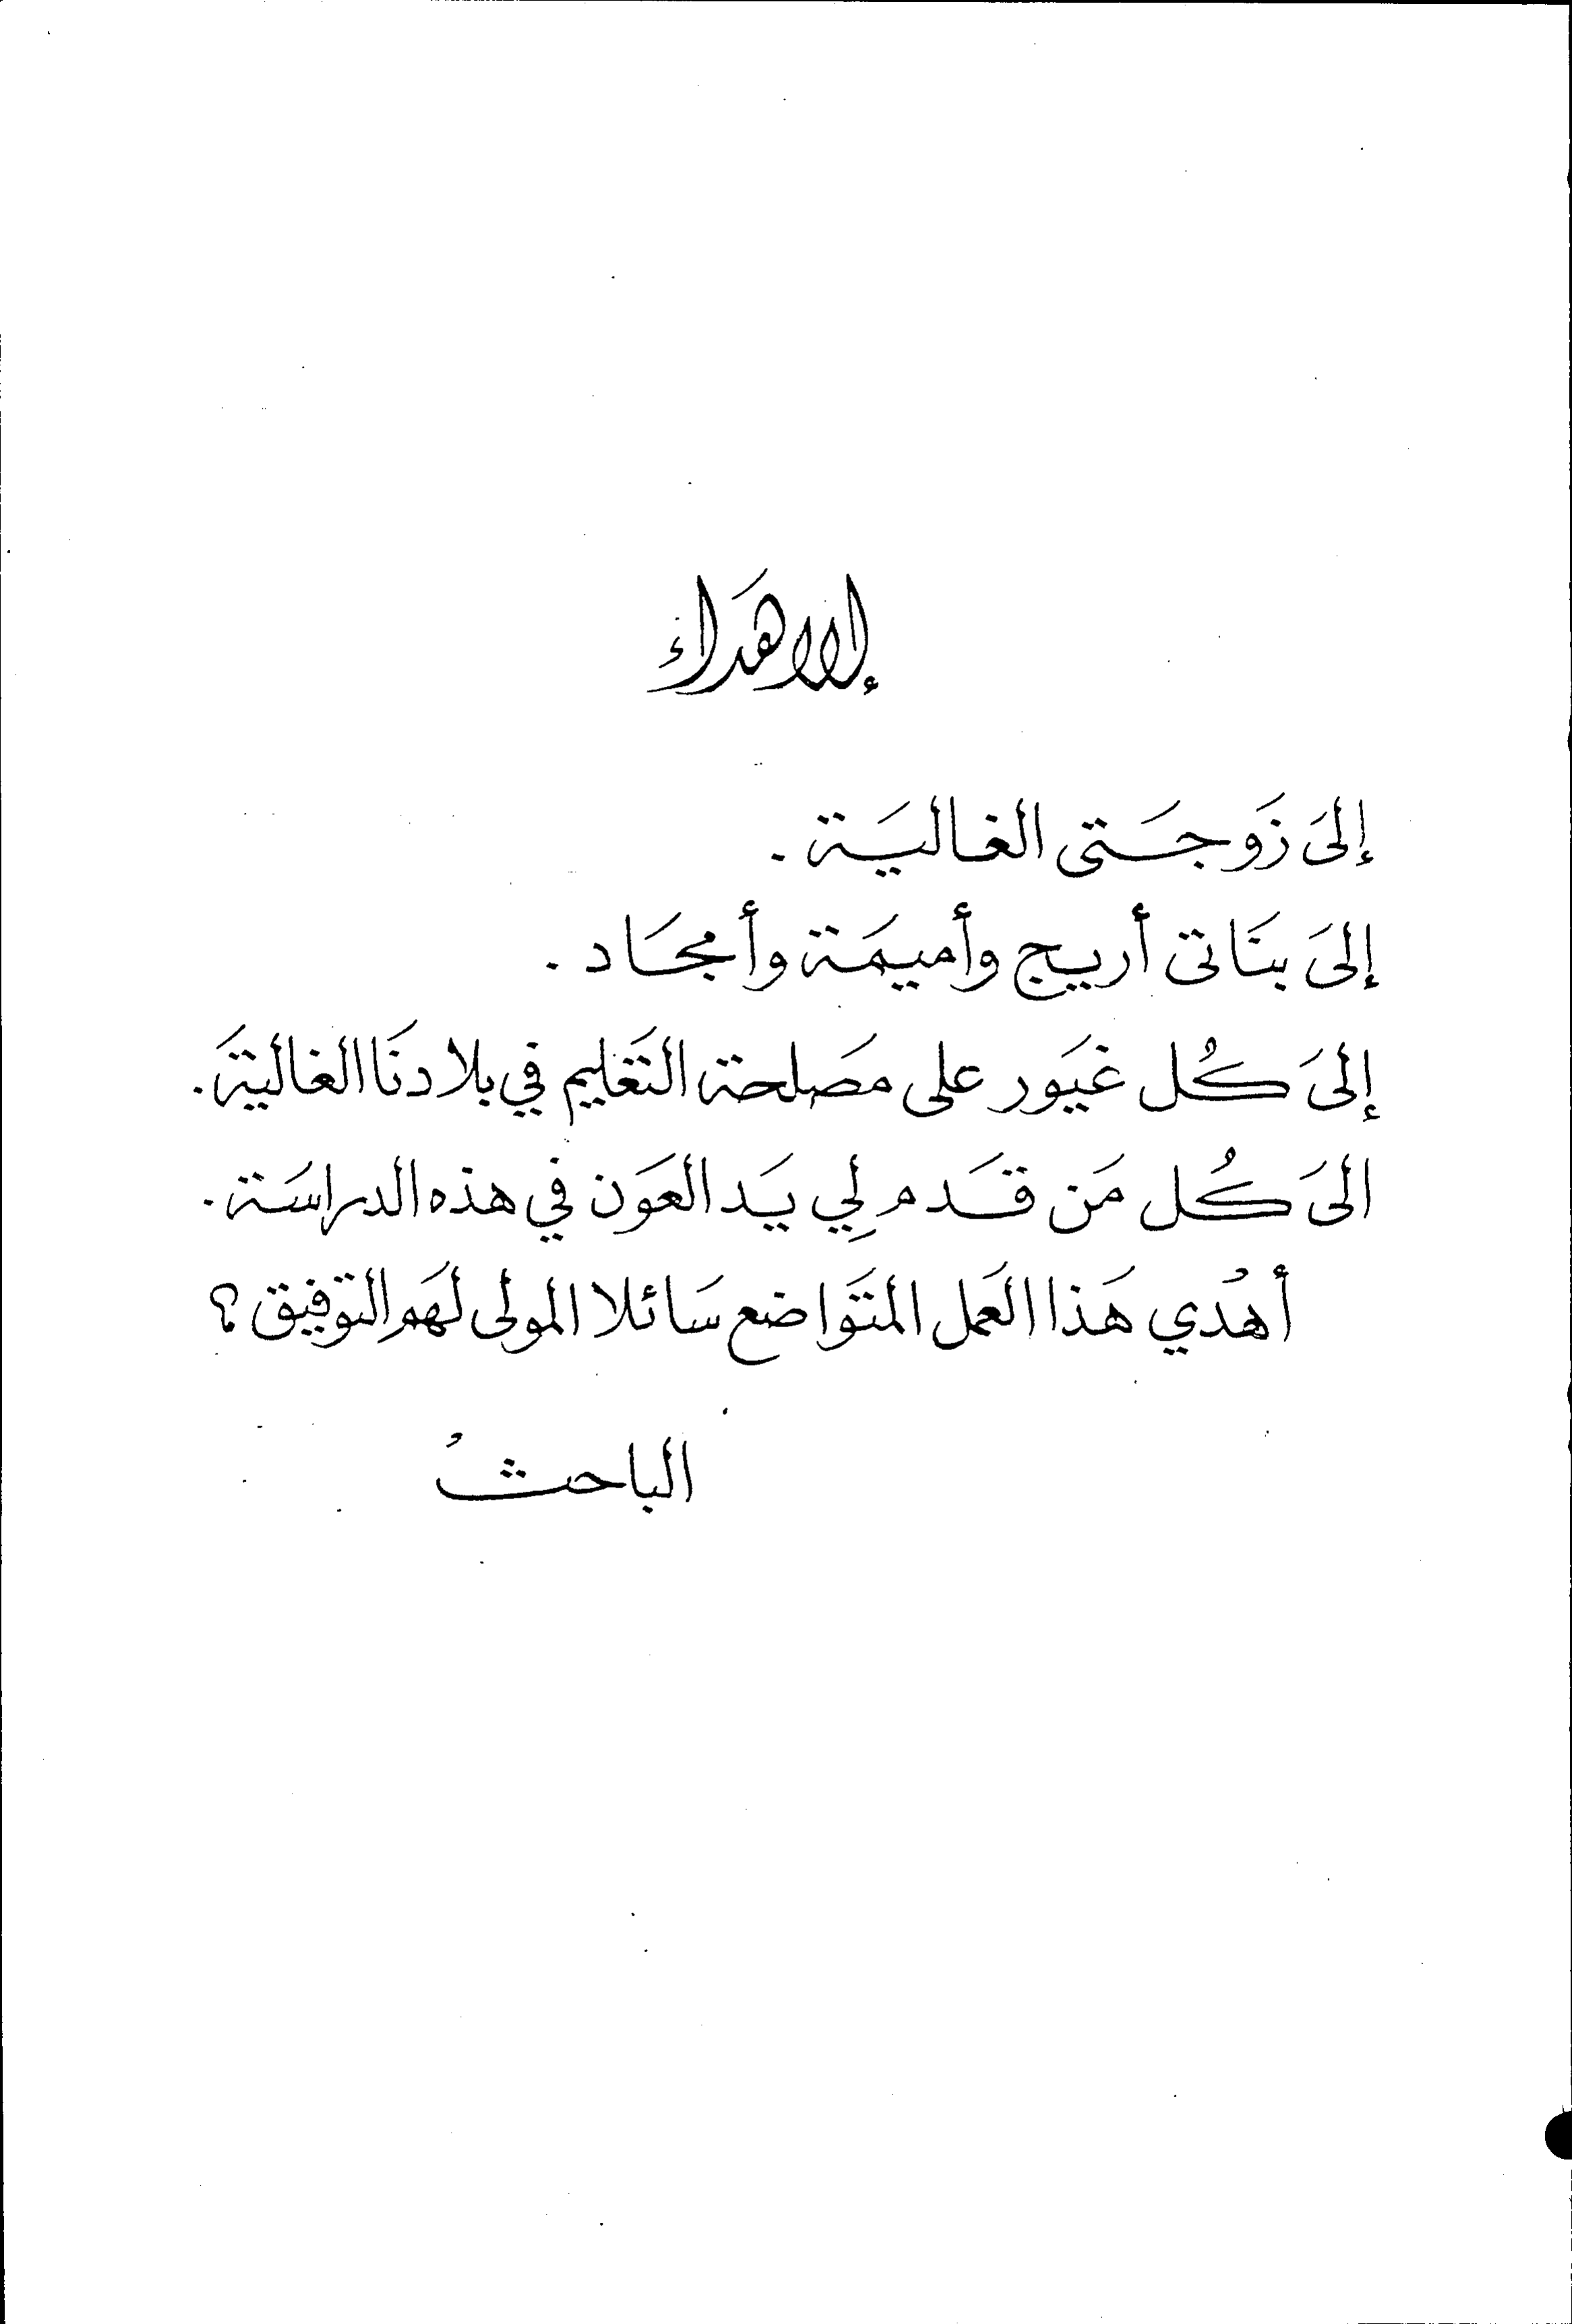 الإهداء
إلىَ زَوجَتى الغاليَة .
إلىَ بنَاتى أريج وأميمَة وأمجَاد .
إلىَ كُل غيَور على مصَلحة التَعليم في بلادنَا الغاليةَ .
الىَ كُل مَن قَدم لِي يَد العَون في هذه الدراسَة .
أهُدي هَذا العَمل المتَواضع سَائلا المولى لهَو التوفيق ؟
الباحثُ